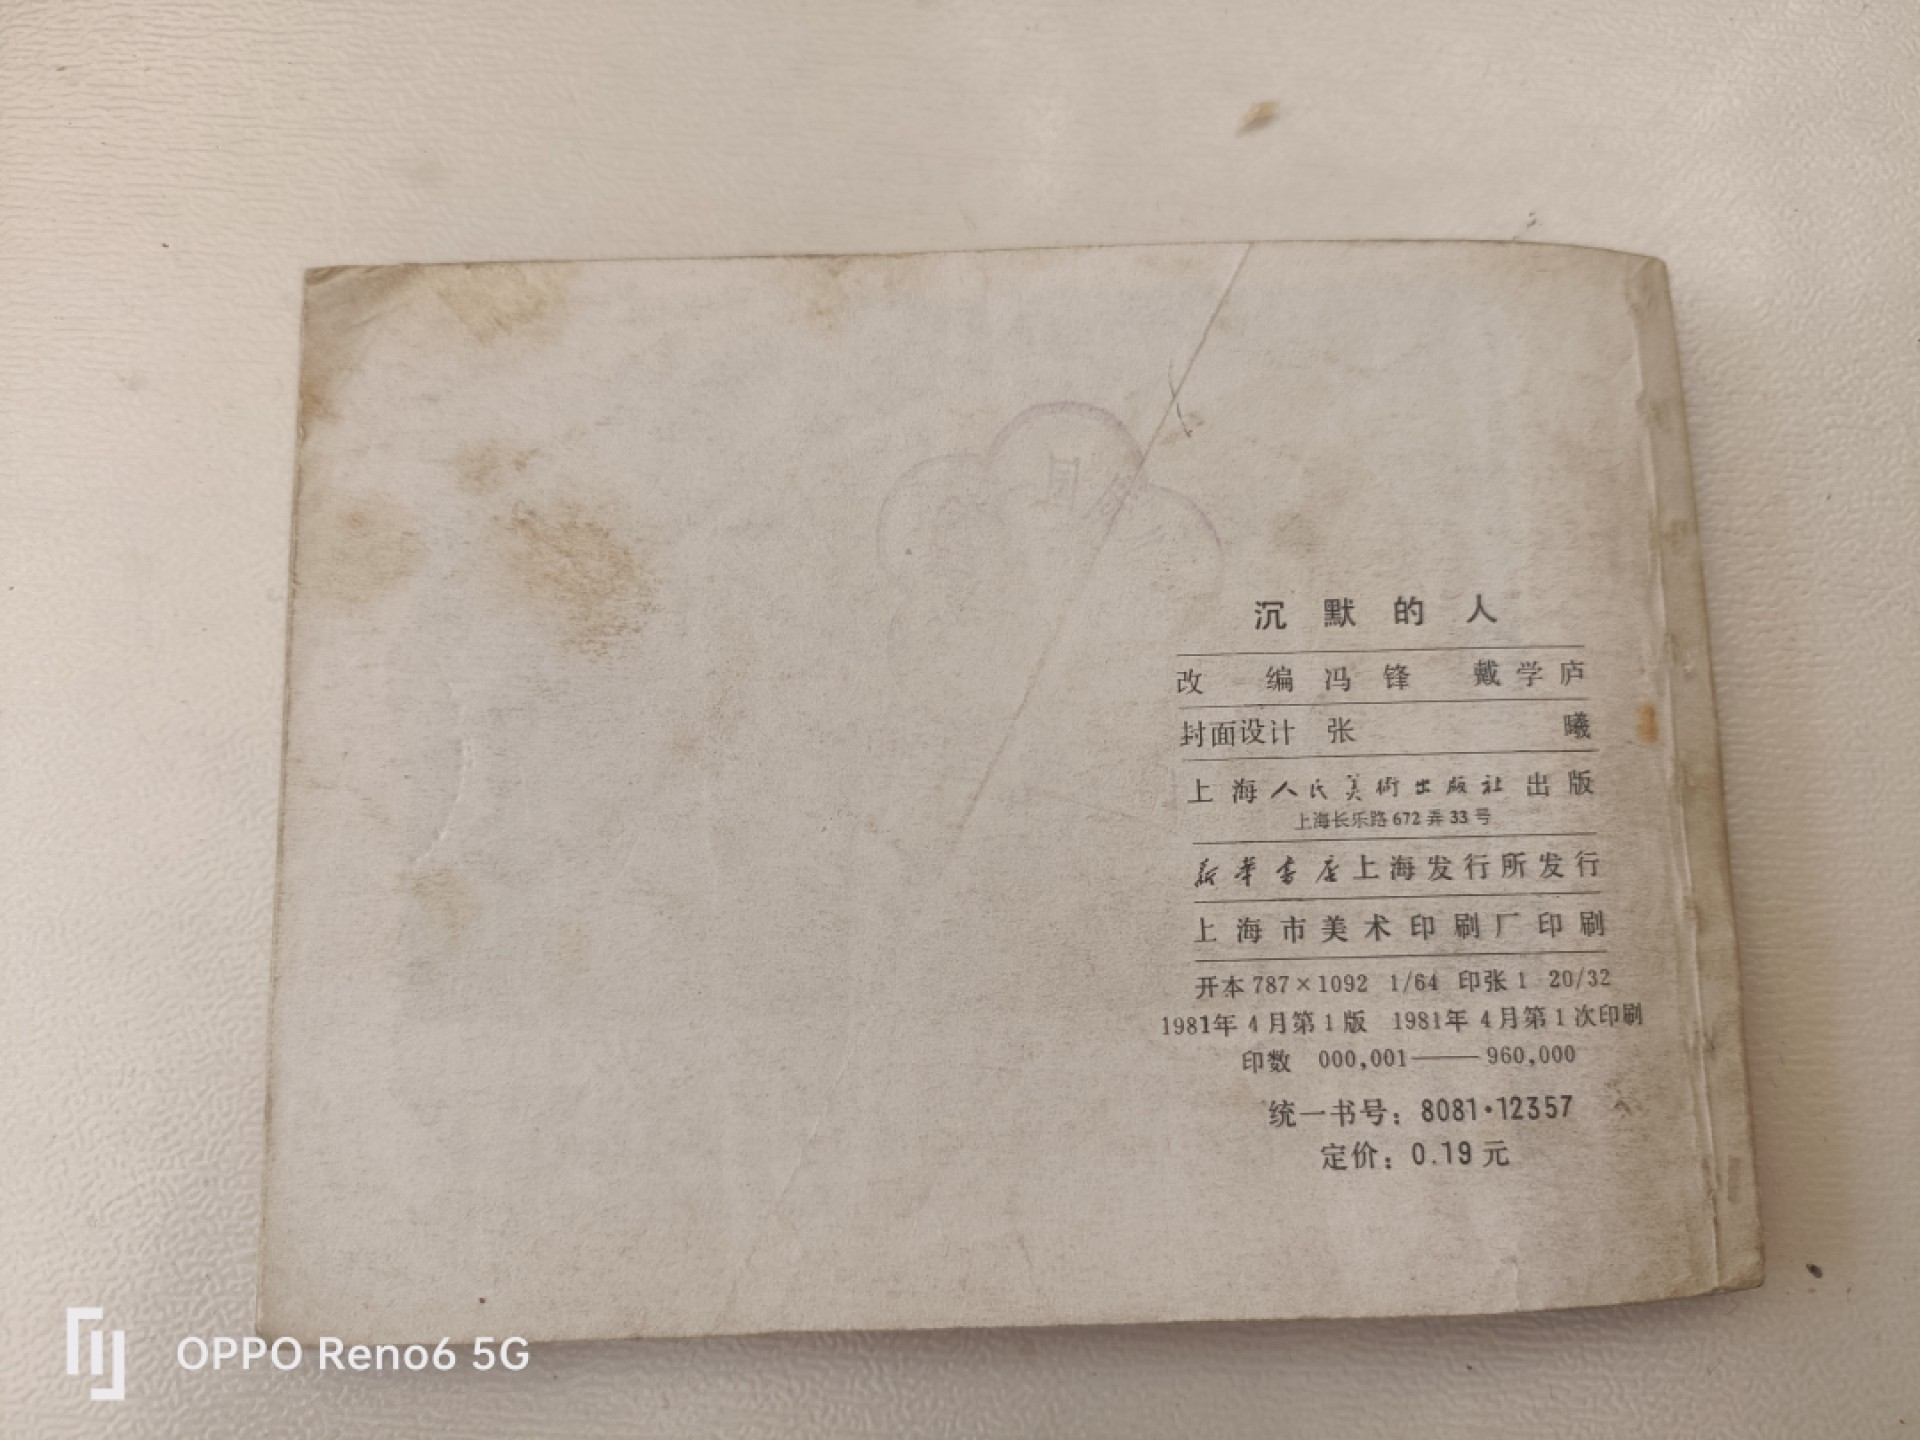 沉默的人
改编 冯锋 戴学庐
封面设计 张曦
上海人民美術出版社出版
上海长乐路672弄33号
新华书店上海发行所发行
上海市美术印刷厂印刷
开本 787×1092 1/64 印张 1 20/32
1981年4月第1版 1981年4月第1次印刷
印数 000,001——960,000
统一书号：8081·12357
定价：0.19元
OPPO Reno6 5G